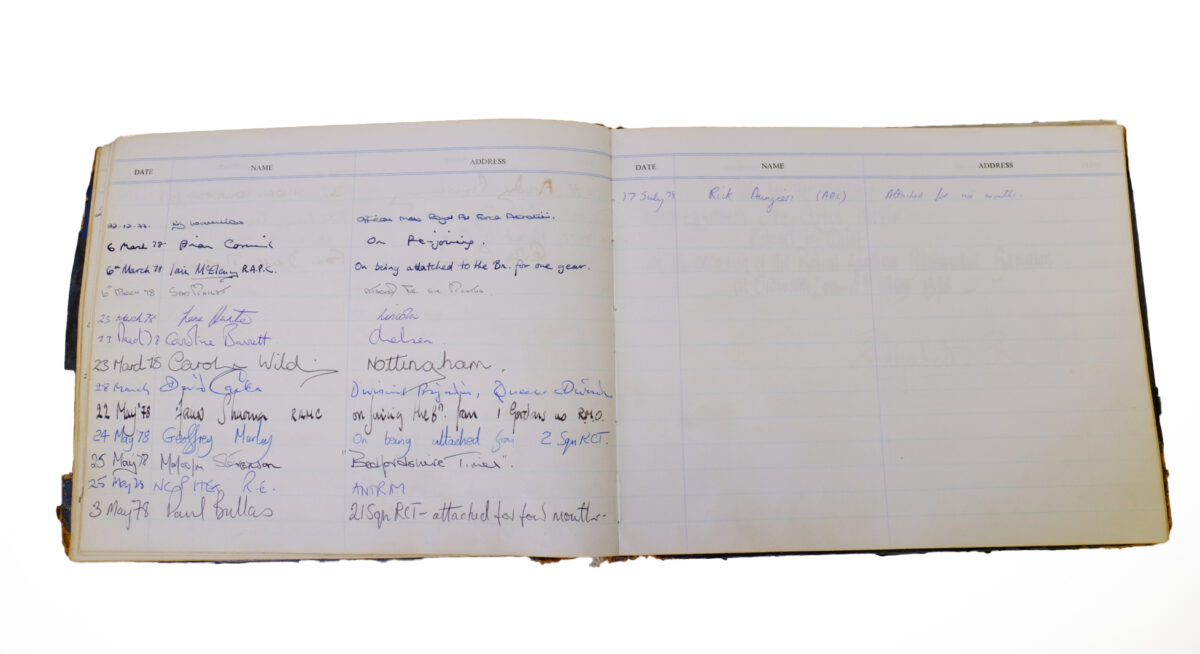 DATE NAME ADDRESS
22.12.77. Officers Mess Royal Air Force
6 March '78 Brian On Re-joining.
6th March '78 Iain McElany R.A.P.C. On being attatched to the Bn. for one year.
6th March '78 for six Months.
23 March '78 Lincoln
23 March '78 Caroline Barrett Chelsea
23 March '78 Carolyn Wild Nottingham.
28 March David Queens Division
22 May '78 Sharma RAMC on joining the Bn. from 1 Gordons as R.M.O.
24 May 78 Geoffrey Marley On being attached from 2 Sqn RCT.
25 May '78 Malcolm Stevenson "Bedfordshire Times".
25 May 78 R.E. ANTRIM
3 May 78 Paul Bullas 21 Sqn RCT - attached for four months -
DATE NAME ADDRESS
17 July 78 Rick Attached for six months.